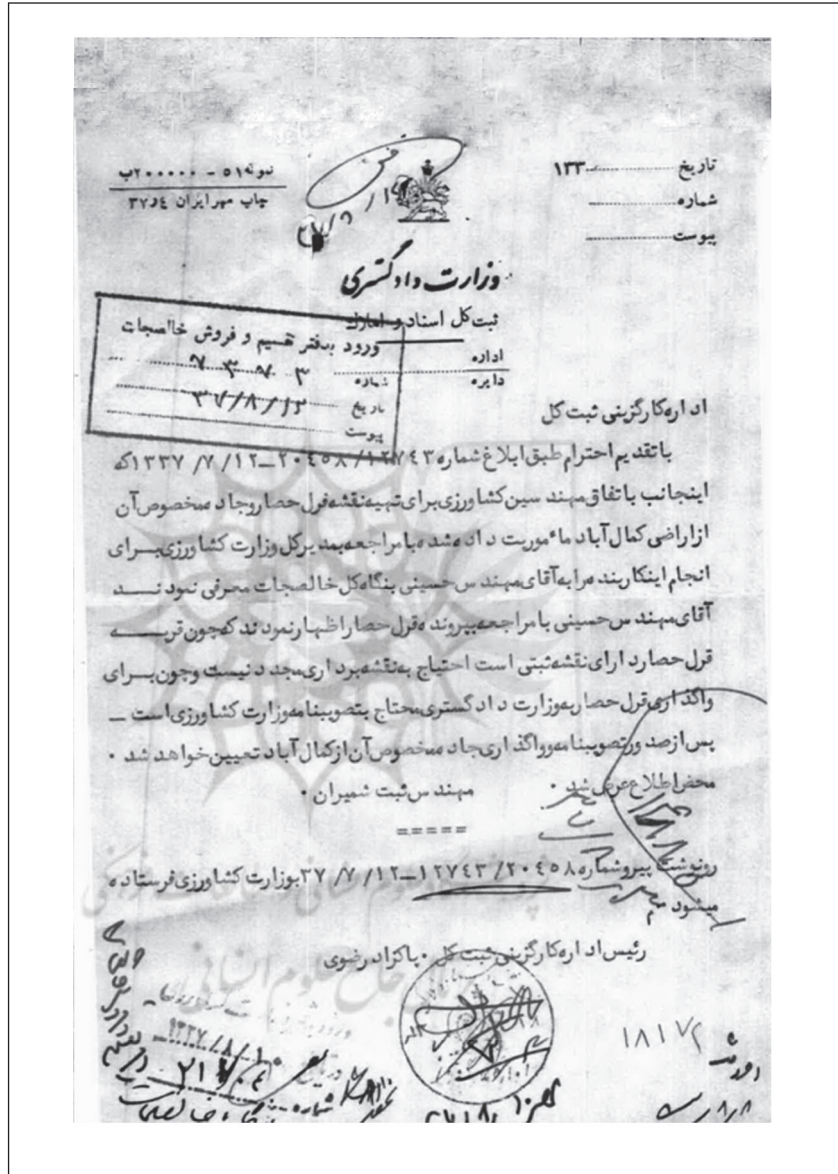 تاریخ ................ ۱۳۳
شماره ................
پیوست ................
نمونه ۵۱ - ۲۰۰۰۰۰ب
چاپ مهر ایران ۳۷ر٤
وزارت دادگستری
ثبت کل اسناد و املاک
اداره
دایره
ورود بدفتر تقسیم و فروش خالصجات
شماره ۷۳۷۳
تاریخ ۳۷/۸/۱۲
پیوست
اداره کارگزینی ثبت کل
با تقدیم احترام طبق ابلاغ شماره ۱۲۷٤۳/۲۰٤۵۸–۱۳۳۷/۷/۱۲ که
اینجانب باتفاق مهندسین کشاورزی برای تهیه نقشه قزل حصار و جاده مخصوص آن
از اراضی کمال آباد ماءموریت داده شده با مراجعه بمدیرکل وزارت کشاورزی برای
انجام اینکار بنده را به آقای مهندس حسینی بنگاه کل خالصجات معرفی نمودند
آقای مهندس حسینی با مراجعه بپرونده قزل حصار اظهار نمودند که چون قریه
قزل حصار دارای نقشه ثبتی است احتیاج به نقشه برداری مجدد نیست و چون برای
واگذاری قزل حصار به وزارت دادگستری محتاج بتصویبنامه وزارت کشاورزی است –
پس از صدور تصویبنامه و واگذاری جاده مخصوص آن از کمال آباد تعیین خواهد شد ۰
محض اطلاع عرض شد ۰ مهندس ثبت شمیران ۰
=====
رونوشت پیرو شماره ۲۰٤۵۸/۱۲۷٤۳–۳۷/۷/۱۲ بوزارت کشاورزی فرستاده
میشود
رئیس اداره کارگزینی ثبت کل ۰ پاکزاد رضوی
جامع علوم انسانی
۱۳۳۷/۸/۱۰
شماره
۱۸۱۷۲